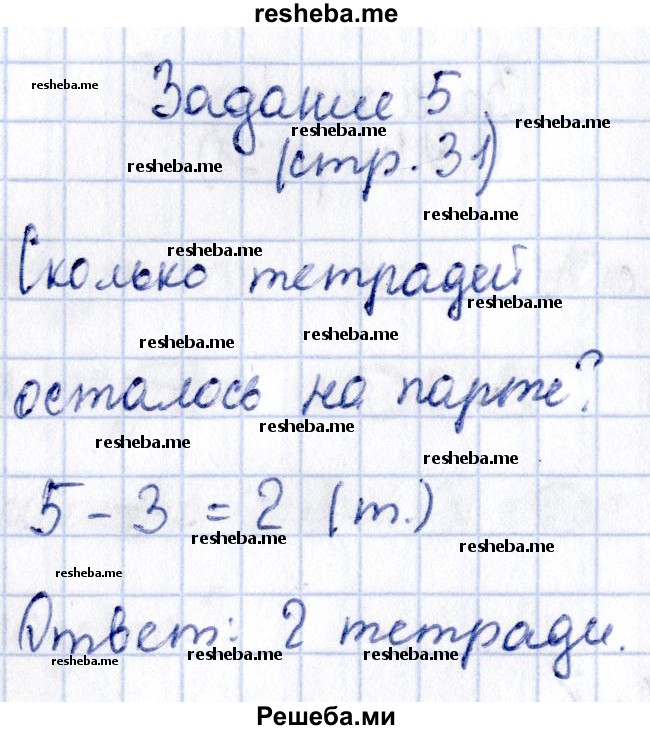 resheba.me
resheba.me
Задание 5
resheba.me
resheba.me
resheba.me
(стр. 31)
resheba.me
resheba.me
Сколько тетрадей
resheba.me
resheba.me
resheba.me
осталось на парте?
resheba.me
resheba.me
resheba.me
5 - 3 = 2 (т.)
resheba.me
resheba.me
resheba.me
Ответ: 2 тетради.
resheba.me
resheba.me
resheba.me
Решеба.ми